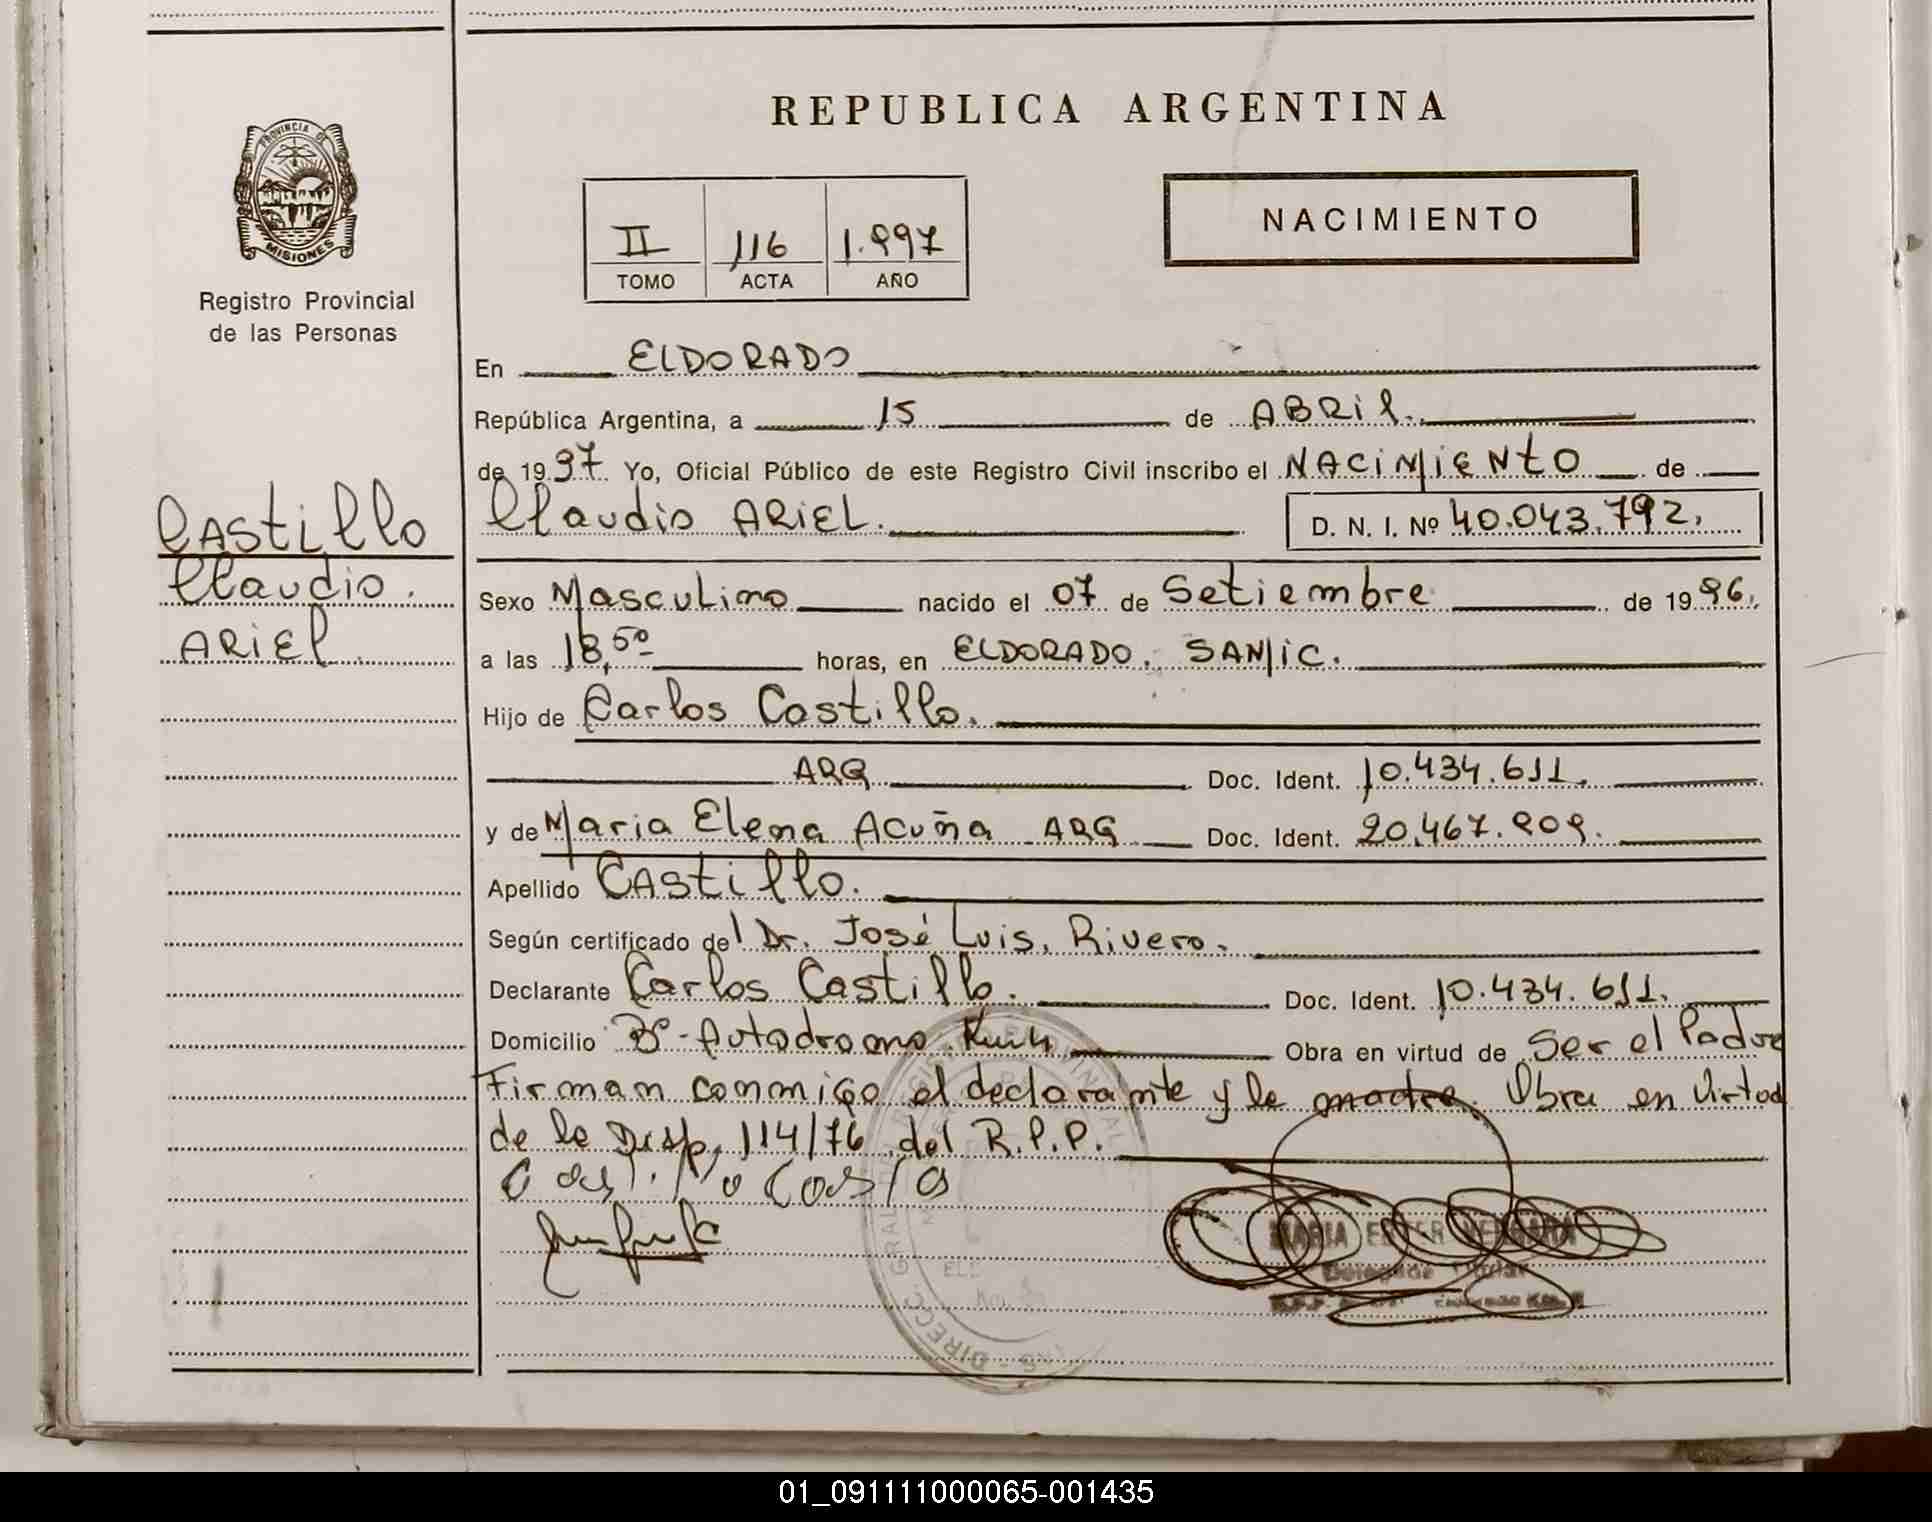 REPUBLICA ARGENTINA
PROVINCIA DE
MISIONES
Registro Provincial
de las Personas
II 116 1.997
TOMO ACTA AÑO
NACIMIENTO
En ELDORADO
República Argentina, a 15 de ABRil.
de 1997. Yo, Oficial Público de este Registro Civil inscribo el NACiMiENtO de
Claudio ARiEL. D. N. I. Nº 40.043.792.
CAStillo
Claudio.
ARiEl
Sexo Masculino nacido el 07 de Setiembre de 1996.
a las 18,50 horas, en ELDORADO. SAMiC.
Hijo de Carlos Castillo.
ARG Doc. Ident. 10.434.611.
y de Maria Elena Acuña ARG Doc. Ident. 20.467.909.
Apellido CAStillo.
Según certificado del Dr. José Luis, Rivero.
Declarante Carlos Castillo. Doc. Ident. 10.434.611.
Domicilio Bº-Autodromo Obra en virtud de Ser el Padre
Firman conmigo el declarante y la madre. Obra en Virtud
de la Disp. 114/76 del R.P.P.
MARIA ESTER VERGARA
Delegada Titular
01_091111000065-001435